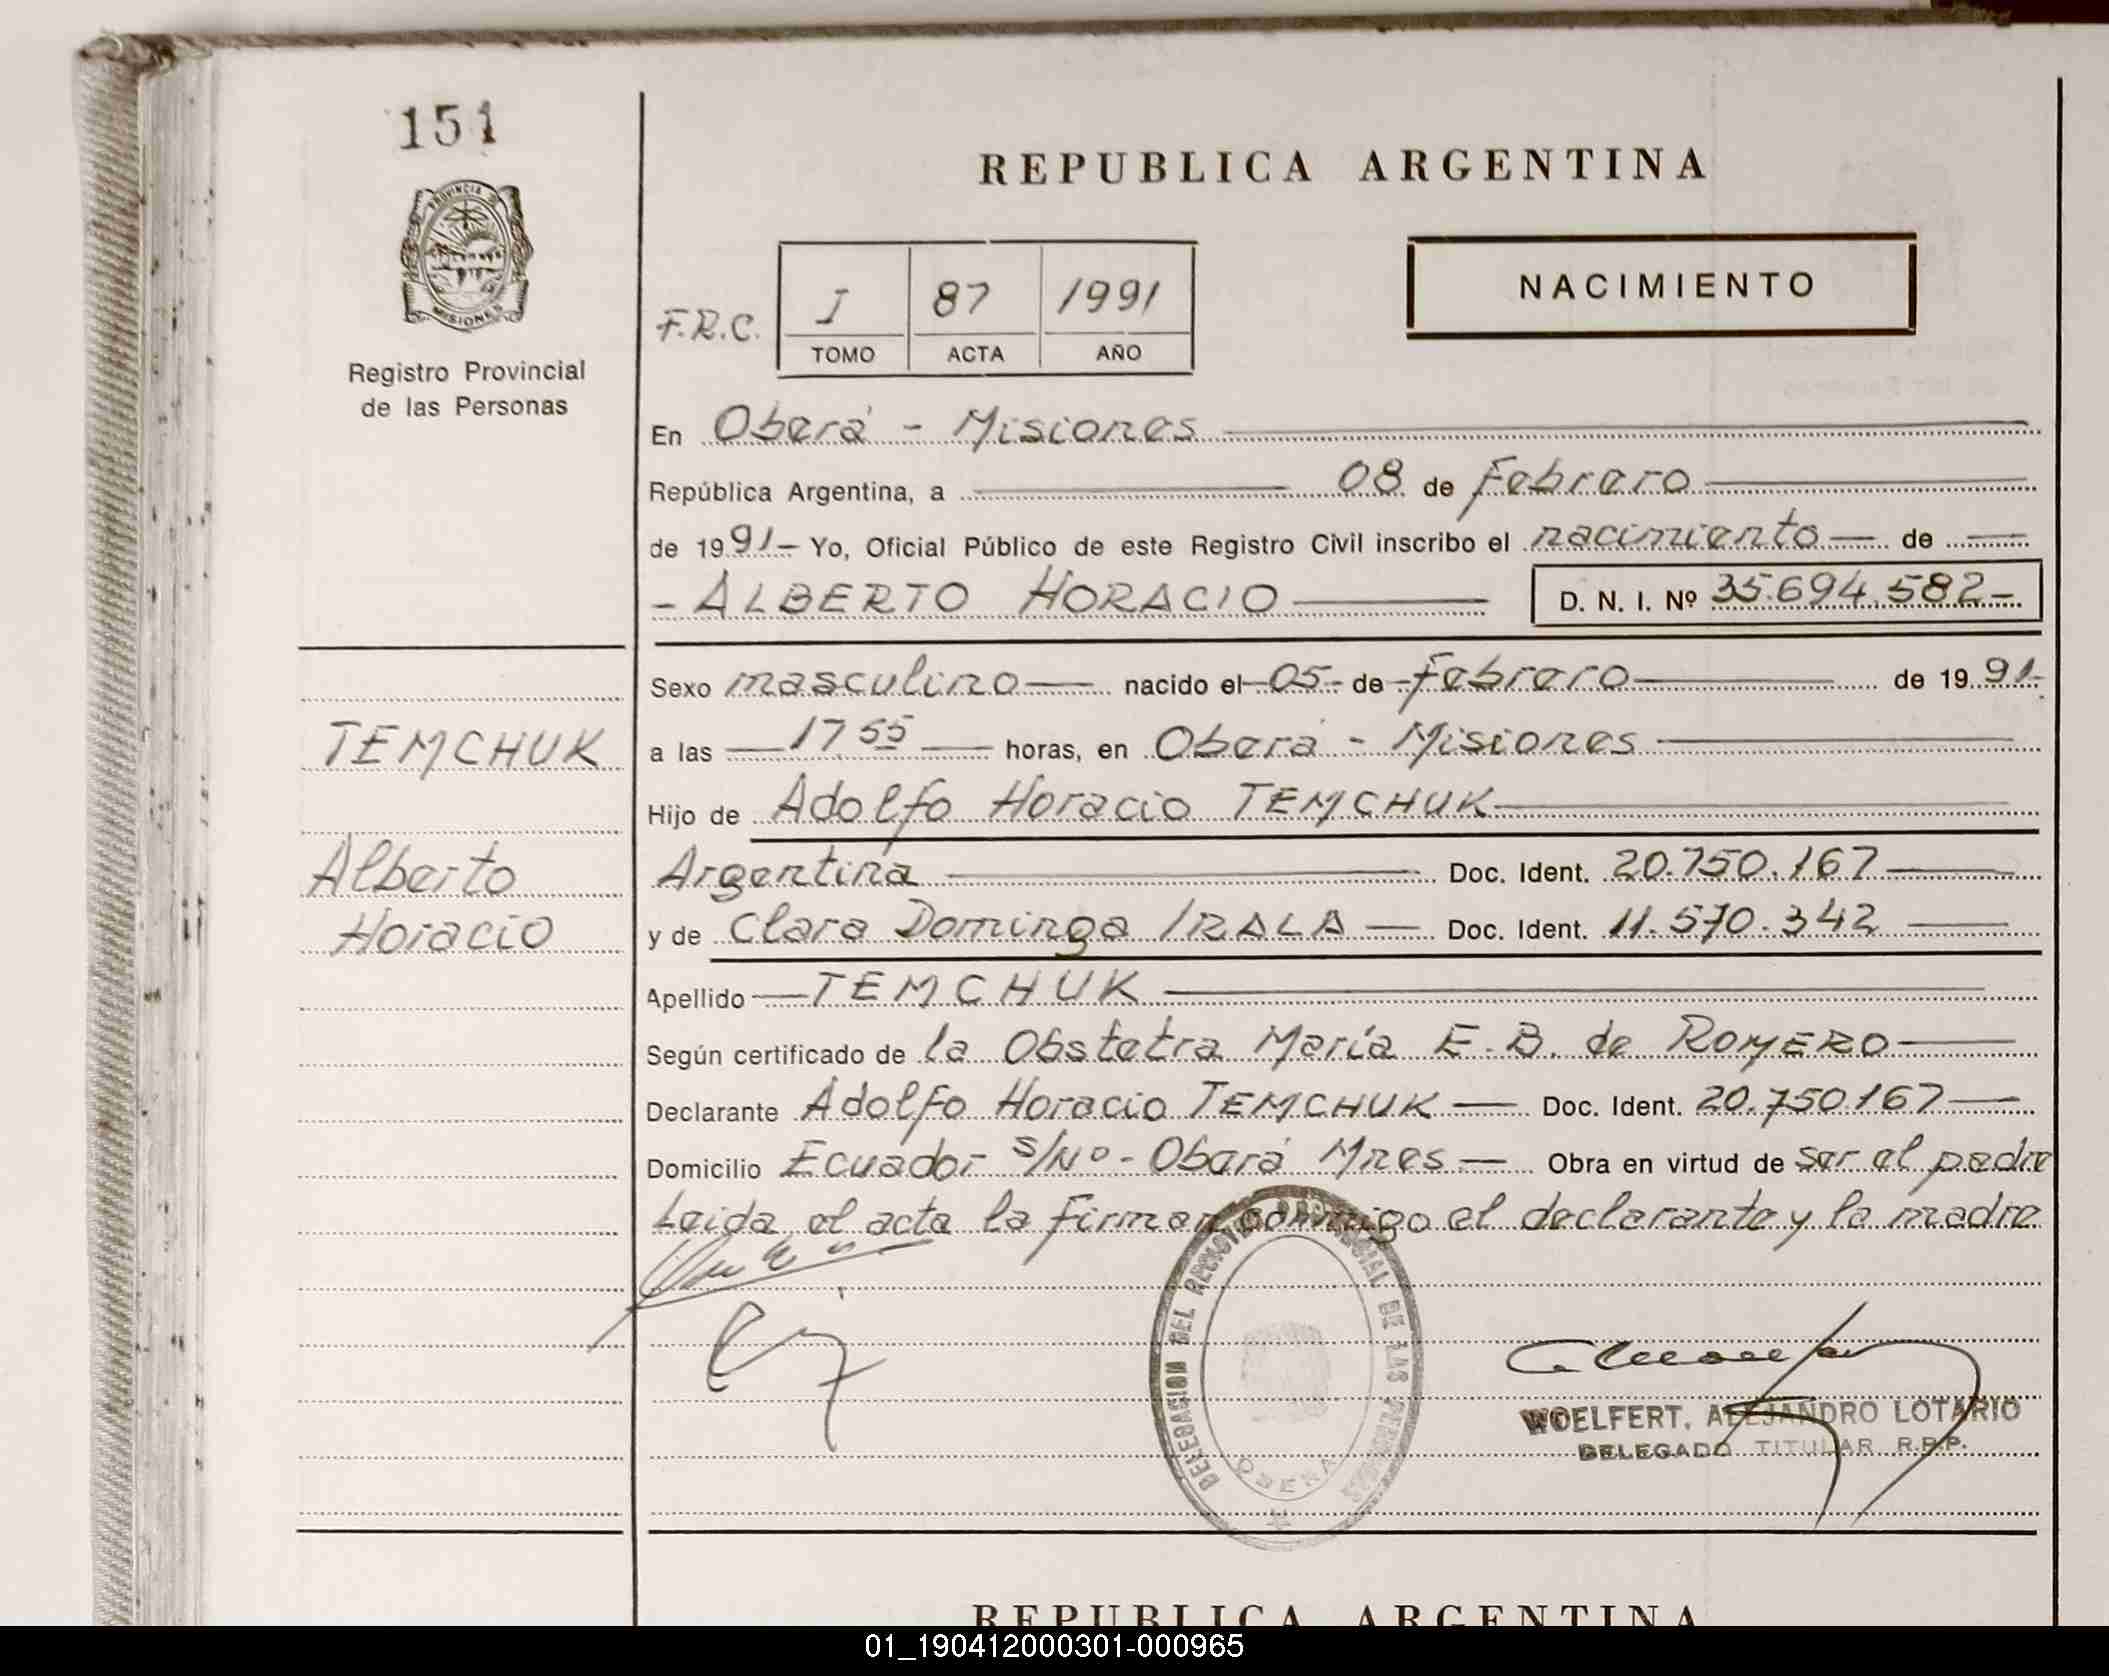 151
PROVINCIA
MISIONES
Registro Provincial
de las Personas
REPUBLICA ARGENTINA
NACIMIENTO
F.R.C.
I 87 1991
TOMO ACTA AÑO
En Oberá - Misiones
República Argentina, a 08 de Febrero
de 1991- Yo, Oficial Público de este Registro Civil inscribo el nacimiento de
- ALBERTO HORACIO D. N. I. Nº 35.694.582-
Sexo masculino nacido el 05 de Febrero de 1991-
TEMCHUK
a las 17.55 horas, en Oberá - Misiones
Hijo de Adolfo Horacio TEMCHUK
Alberto
Horacio
Argentina Doc. Ident. 20.750.167
y de Clara Dominga IRALA Doc. Ident. 11.570.342
Apellido TEMCHUK
Según certificado de la Obstetra María E. B. de ROMERO
Declarante Adolfo Horacio TEMCHUK Doc. Ident. 20.750.167
Domicilio Ecuador s/Nº - Oberá Mnes Obra en virtud de ser el padre
Leida el acta la firman conmigo el declarante y la madre
DELEGACION DEL REGISTRO PROVINCIAL DE LAS PERSONAS
OBERA
WOELFERT, ALEJANDRO LOTARIO
DELEGADO TITULAR R.P.P.
REPUBLICA ARGENTINA
01_190412000301-000965